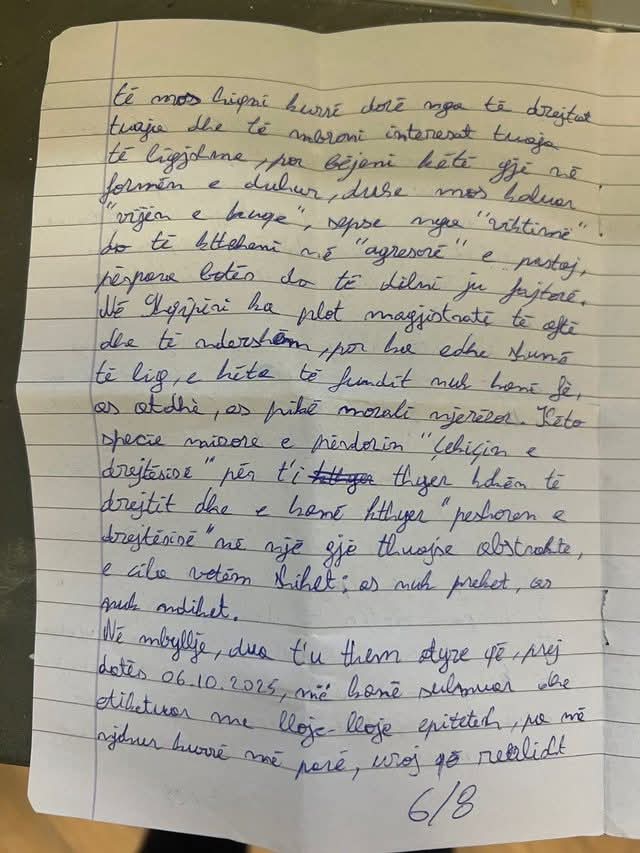 të mos hiqni kurrë dorë nga të drejtat
tuaja dhe të mbroni interesat tuaja
të ligjshme, por bëjeni këtë gjë në
formën e duhur, duke mos kaluar
"vijën e kuqe", sepse nga "viktimë"
do të ktheheni në "agresorë" e pastaj,
përpara botës do të dilni ju fajtorë.
Në Shqipëri ka plot magjistratë të aftë
dhe të ndershëm, por ka edhe shumë
të lig, e këta të fundit nuk kanë fe,
as atdhe, as pikë morali njerëzor. Këto
specie mizore e përdorin "Çekiçin e
drejtësisë" për t'i kthyer thyer kokën të
drejtit dhe e kanë kthyer "peshoren e
drejtësisë" në një gjë thuajse abstrakte,
e cila vetëm shihet; as nuk preket, as
nuk ndihet.
Në mbyllje, dua t'u them atyre që, prej
datës 06.10.2025, më kanë sulmuar dhe
etiketuar me lloje-lloje epitetesh, pa më
njohur kurrë më parë, uroj që realisht
6/8